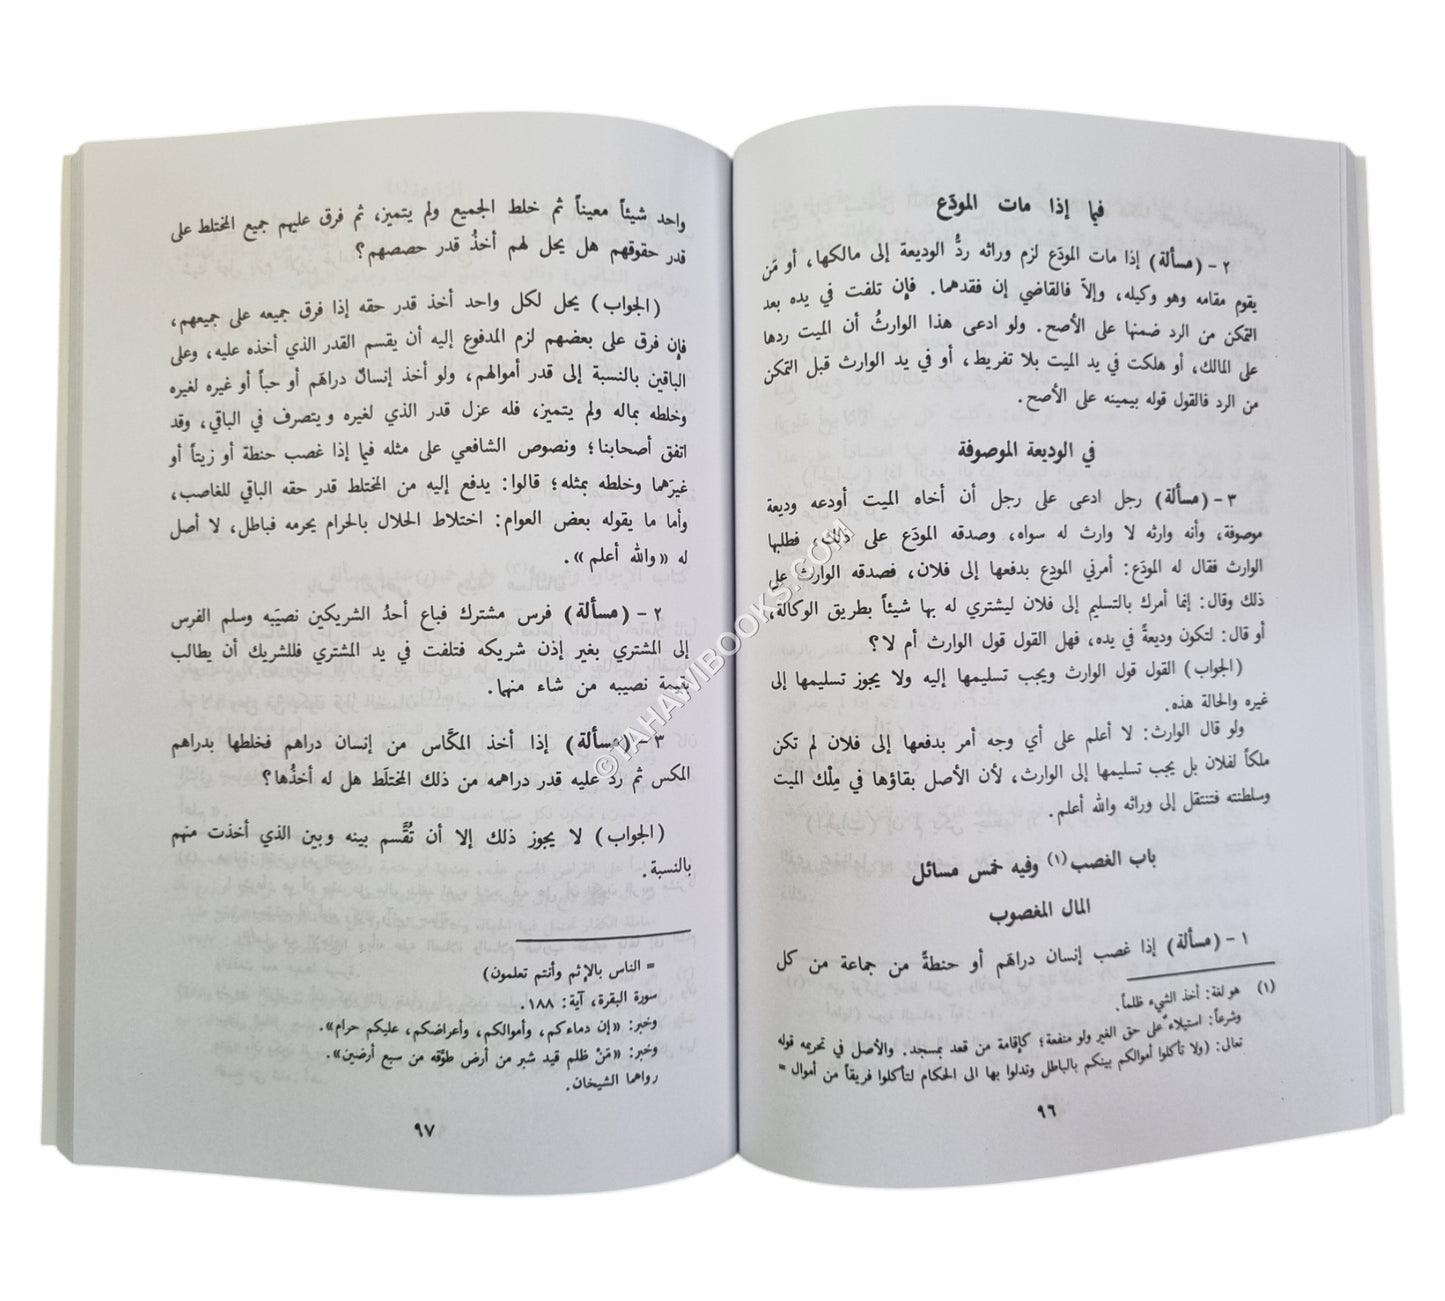 فيما إذا مات المودَع
٢ - (مسألة) إذا مات المودَع لزم وراثه ردُّ الوديعة إلى مالكها، أو مَن
يقوم مقامه وهو وكيله، وإلاّ فالقاضي إن فقدهما. فإن تلفت في يده بعد
التمكن من الرد ضمنها على الأصح. ولو ادعى هذا الوارثُ أن الميت ردها
على المالك، أو هلكت في يد الميت بلا تفريط، أو في يد الوارث قبل التمكن
من الرد فالقول قوله بيمينه على الأصح.
في الوديعة الموصوفة
٣ - (مسألة) رجل ادعى على رجل أن أخاه الميت أودعه وديعة
موصوفة، وأنه وارثه لا وارث له سواه، وصدقه المودَع على ذلك، فطلبها
الوارث فقال له المودَع: أمرني المودِع بدفعها إلى فلان، فصدقه الوارث على
ذلك وقال: إنما أمرك بالتسليم إلى فلان ليشتري له بها شيئاً بطريق الوكالة،
أو قال: لتكون وديعةً في يده، فهل القول قول الوارث أم لا؟
(الجواب) القول قول الوارث ويجب تسليمها إليه ولا يجوز تسليمها إلى
غيره والحالة هذه.
ولو قال الوارث: لا أعلم على أي وجه أمر بدفعها إلى فلان لم تكن
ملكاً لفلان بل يجب تسليمها إلى الوارث، لأن الأصل بقاؤها في مِلْك الميت
وسلطنته فتنتقل إلى وراثه والله أعلم.
باب الغصب (١) وفيه خمس مسائل
المال المغصوب
١ - (مسألة) إذا غصب إنسان دراهَم أو حنطةً من جماعة من كل
(١) هو لغة: أخذ الشيء ظلماً.
وشرعاً: استيلاء على حق الغير ولو منفعة؛ كإقامة من قعد بمسجد. والأصل في تحريمه قوله
تعالى: (ولا تأكلوا أموالكم بينكم بالباطل وتدلوا بها الى الحكام لتأكلوا فريقاً من أموال =
٩٦
واحد شيئاً معيناً ثم خلط الجميع ولم يتميز، ثم فرق عليهم جميع المختلط على
قدر حقوقهم هل يحل لهم أخذُ قدر حصصهم؟
(الجواب) يحل لكل واحد أخذ قدر حقه إذا فرق جميعه على جميعهم،
فإن فرق على بعضهم لزم المدفوع إليه أن يقسم القدر الذي أخذه عليه، وعلى
الباقين بالنسبة إلى قدر أموالهم، ولو أخذ إنسانٌ دراهَم أو حباً أو غيره لغيره
وخلطه بماله ولم يتميز، فله عزل قدر الذي لغيره ويتصرف في الباقي، وقد
اتفق أصحابنا؛ ونصوص الشافعي على مثله فيما إذا غصب حنطة أو زيتاً أو
غيرَهما وخلطه بمثله؛ قالوا: يدفع إليه من المختلط قدر حقه الباقي للغاصب،
وأما ما يقوله بعض العوام: اختلاط الحلال بالحرام يحرمه فباطل، لا أصل
له «والله أعلم».
٢ - (مسألة) فرس مشترك فباع أحدُ الشريكين نصيبَه وسلم الفرس
إلى المشتري بغير إذن شريكه فتلفت في يد المشتري فللشريك أن يطالب
بقيمة نصيبه من شاء منهما.
٣ - (مسألة) إذا أخذ المكَّاس من إنسان دراهم فخلطها بدراهم
المكس ثم ردَّ عليه قدر دراهمه من ذلك المختلَط هل له أخذُها؟
(الجواب) لا يجوز ذلك إلا أن تُقَّسم بينه وبين الذي أخذت منهم
بالنسبة.
= الناس بالإثم وأنتم تعلمون)
سورة البقرة، آية: ١٨٨.
وخبر: «إن دماءكم، وأموالكم، وأعراضكم، عليكم حرام».
وخبر: «مَنْ ظلم قيد شبر من أرض طوَّقه من سبع أرضين».
رواهما الشيخان.
٩٧
©TAHAWIBOOKS.COM